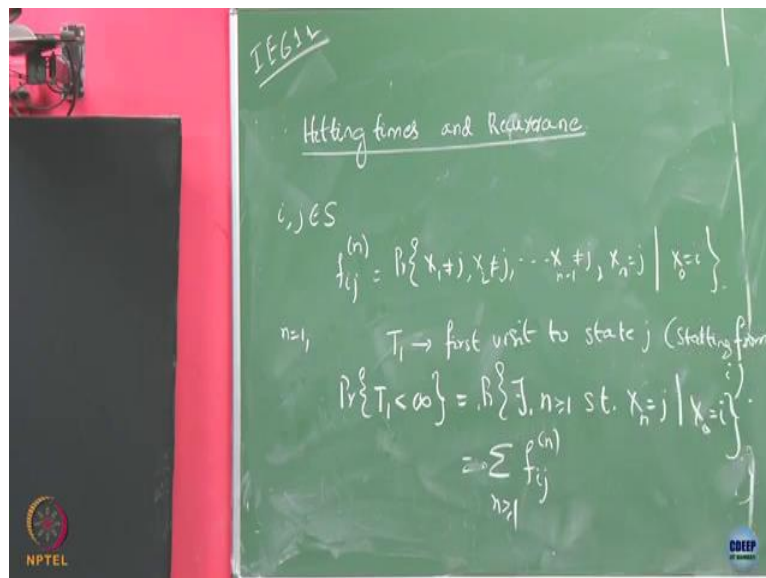 IE611
Hitting times and Recurrence
i, j ∈ S
f_{ij}^{(n)} = Pr{ X_1 ≠ j, X_2 ≠ j, ... X_{n-1} ≠ j, X_n = j | X_0 = i }.
n=1, T_1 → first visit to state j (starting from i).
Pr{ T_1 < ∞ } = Pr{ ∃, n ≥ 1 st. X_n = j | X_0 = i }
= Σ_{n≥1} f_{ij}^{(n)}
NPTEL
CDEEP
IIT BOMBAY